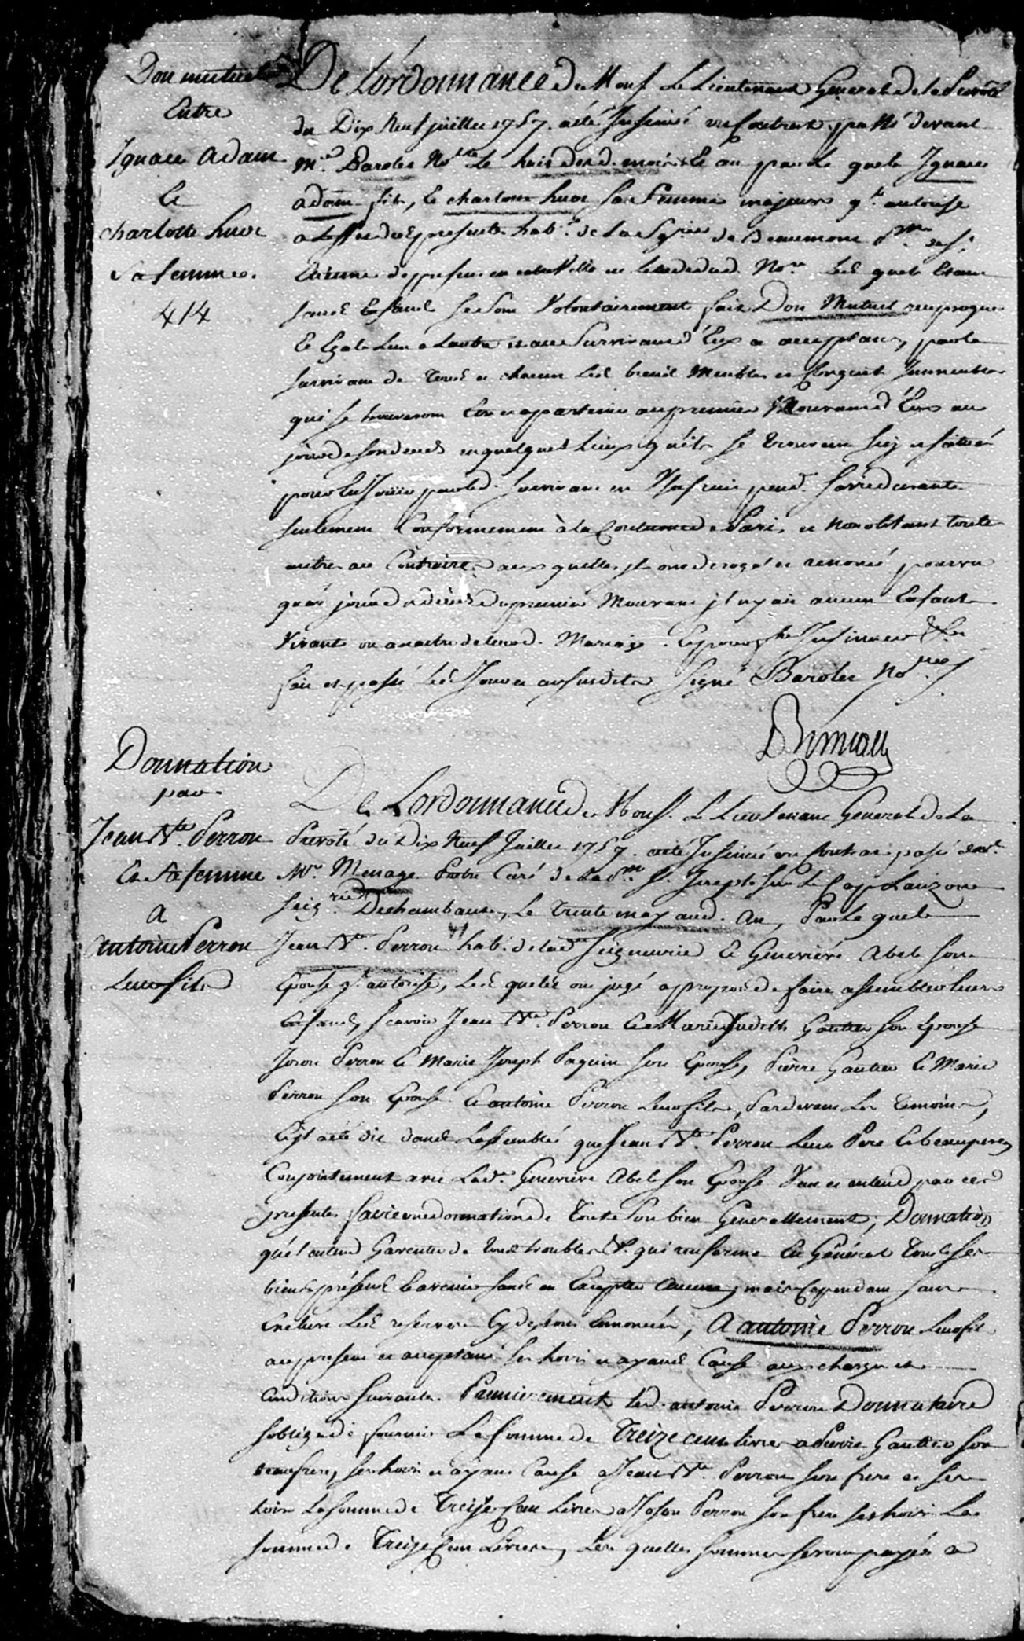 Don mutuel
Entre
Ignace Adam
&
charlotte huot
sa femme.
414
De Lordonnance de Mons. Le Lieutenant General de la Prevoté
du Dix Neuf juillet 1757. a été Insinué un Contrat passé devant
Me. Barolet No.re Le au par le quel Ignace
adam fils, & charlotte huot sa femme majeurs q.l autorise
a L'effet des presentes hab.t de la Sgrie de Beaumont
Etienne de present en cette Ville Led. No.re Les quels Etant
sans Enfans se sont Volontairement fait Don Mutuel reciproque
& Egal L'un a L'autre et au Survivant d'Eux ce acceptant, par le
survivant de tous et chacun Les biens Meubles et Conquest Immeubles
qui se trouveront Etre et apartenir au premier Mourant d'Eux au
jour de son deces en quelques Lieux qu'ils se trouvent Sis et situés
pour En Jouir par led. survivant en Usufruit pend. sa vie durante
seulement Conformement à la Coutume de Paris et Nonobstant toutes
autres au Contraire, aux quelles ils ont derogé et renoncé pourvu
qu'au jour du deces du premier Mourant il n'y ait aucun Enfant
Vivant ou a naitre de leurd. Mariage. Et pour faire Insinuer &ca
fait et passé Les Jour et an susdits Signé Barolet No.re
Donnation
par
Jean Bte. Perron
Et sa femme
A
antoine Perron
Leur fils
De Lordonnance de Mons. Le Lieutenant General de La
Prevoté du Dix Neuf Juillet 1757. a été Insinué un Contrat passé dev.t
Mr. Menage Pretre Curé de St. Joseph sur Le Cap Lauzon
seig.rie Deschambault, Le trente may aud. An, Par Le quel
Jean Bte. Perron hab.t de lad. Seigneurie & Genevieve Abel son
Epouse q.l autorise, Les quels ont jugé a propos de faire assembler leurs
Enfans, scavoir Jean Bte. Perron & Marie Judith Gautier son Epouse
Joson Perron & Marie Joseph Paquin son Epouse, Pierre Gautier & Marie
Perron son Epouse & antoine Perron Leur fils, Par devant Les temoins,
Il a été dit dans L'assemblée que Jean Bte. Perron Leur Pere & beau pere
Conjointement avec Lad. Genevieve Abel son Epouse Veut et entend par ces
presentes faire une donnation de toute son bien Generallement, Donnation
qu'il entend Garentir de tous troubles &c. qui renferme En General tous ses
biens present & avenir sans en Excepter aucune, mais Cependant sans
Exclure Les reserves Cy dessous Enoncées, A antoine Perron Leur fils
au present et acceptant ses hoirs et ayans Cause aux charges et
Conditions suivantes. Premierement Led. antoine Perron Donnataire
s'oblige de fournir La somme de Treize cens livres a Pierre Gautier son
beaufrere, ses hoirs et ayans Cause a Jean Bte. Perron son frere et ses
hoirs La somme de Treize Cens Livres a Joson Perron son frere ses hoirs La
somme de Treize Cens Livres, Les quelles sommes seront payées a